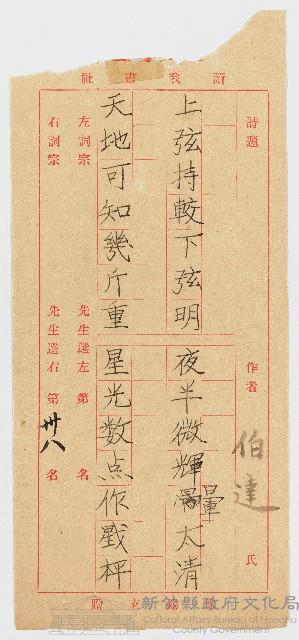 讀我書社
詩題
作者 伯達 氏
上弦持較下弦明 夜半微輝暈太清
天地可知幾斤重 星光数点作戥枰
左詞宗 先生選左第 名
右詞宗 先生選右第 卅八 名
贈
新竹縣政府文化局
Cultural Affairs Bureau of Hsinchu County Government